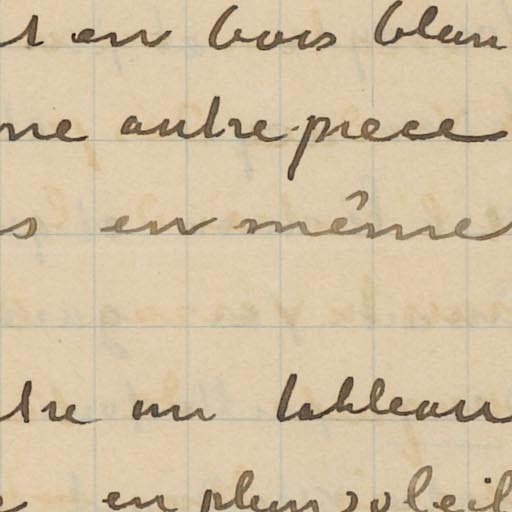 t en bois blan
ne autre piece
s en même
tre un tableau
en plein soleil